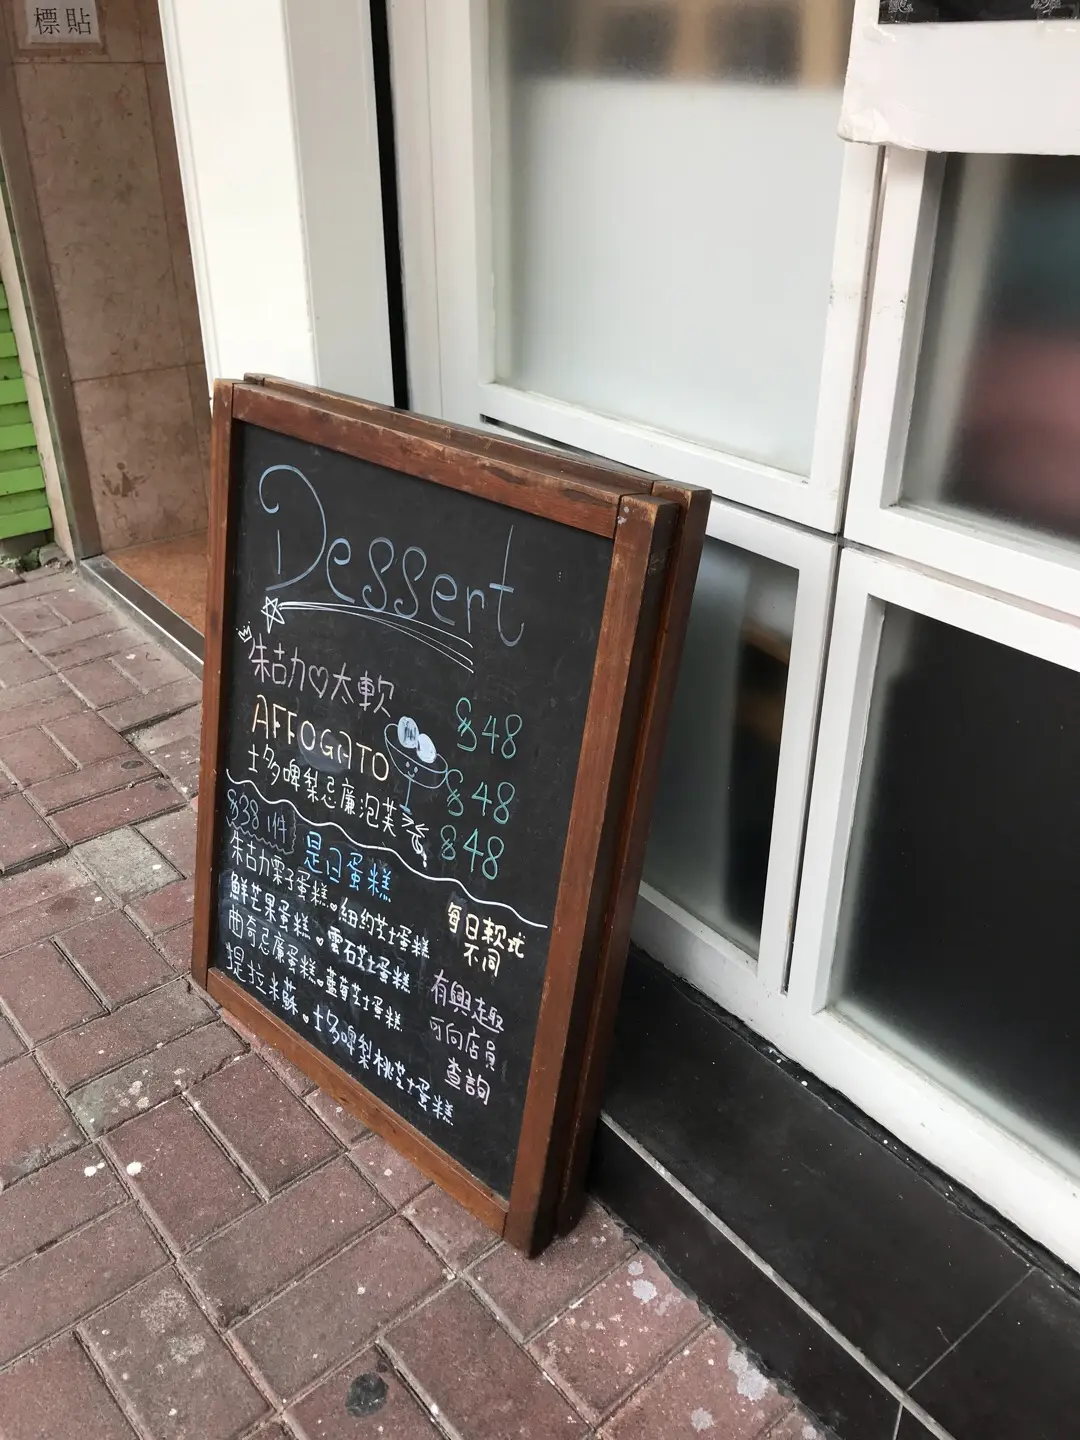 標貼
Dessert
朱古力♡太軟 $48
AFFOGATO $48
士多啤梨忌廉泡芙 $48
$38 1件 是日蛋糕
朱古力栗子蛋糕。紐約芝士蛋糕
鮮芒果蛋糕。雲石芝士蛋糕
曲奇忌廉蛋糕。藍莓芝士蛋糕
提拉米蘇。士多啤梨桃芝士蛋糕
每日款式
不同
有興趣
可向店員
查詢